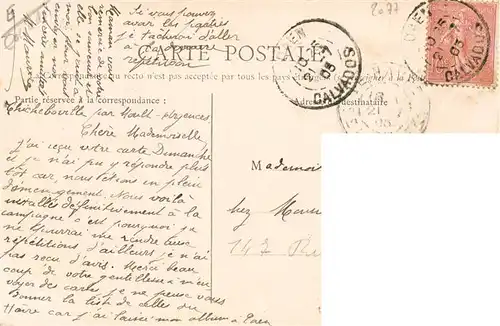 2077
Si vous pouvez
avoir les cachets
je tâcherai d'aller
à la
répétition
Maman
remercie de votre
bon souvenir et
elle se joint à
moi pour vous
CARTE POSTALE
CAEN
05
CALVADOS
CALVADOS
05
21
du recto n'est pas acceptée par tous les pays
Partie réservée à la correspondance :
Adresse du destinataire
Chicheboville par Moult-Argences
Chère Mademoiselle
J'ai reçu votre carte Dimanche
et je n'ai pu y répondre plus
tôt car, nous étions en plein
déménagement. Nous voilà
installés définitivement à la
campagne c'est pourquoi je
ne pourrai me rendre aux
répétitions d'ailleurs je n'ai
pas reçu d'avis. Merci beau
coup de votre gentillesse à m'en
voyer des cartes je ne peux vous
donner la liste de celles du
Hâvre car j'ai laissé mon album à Caen
Mademois
chez Mon
143